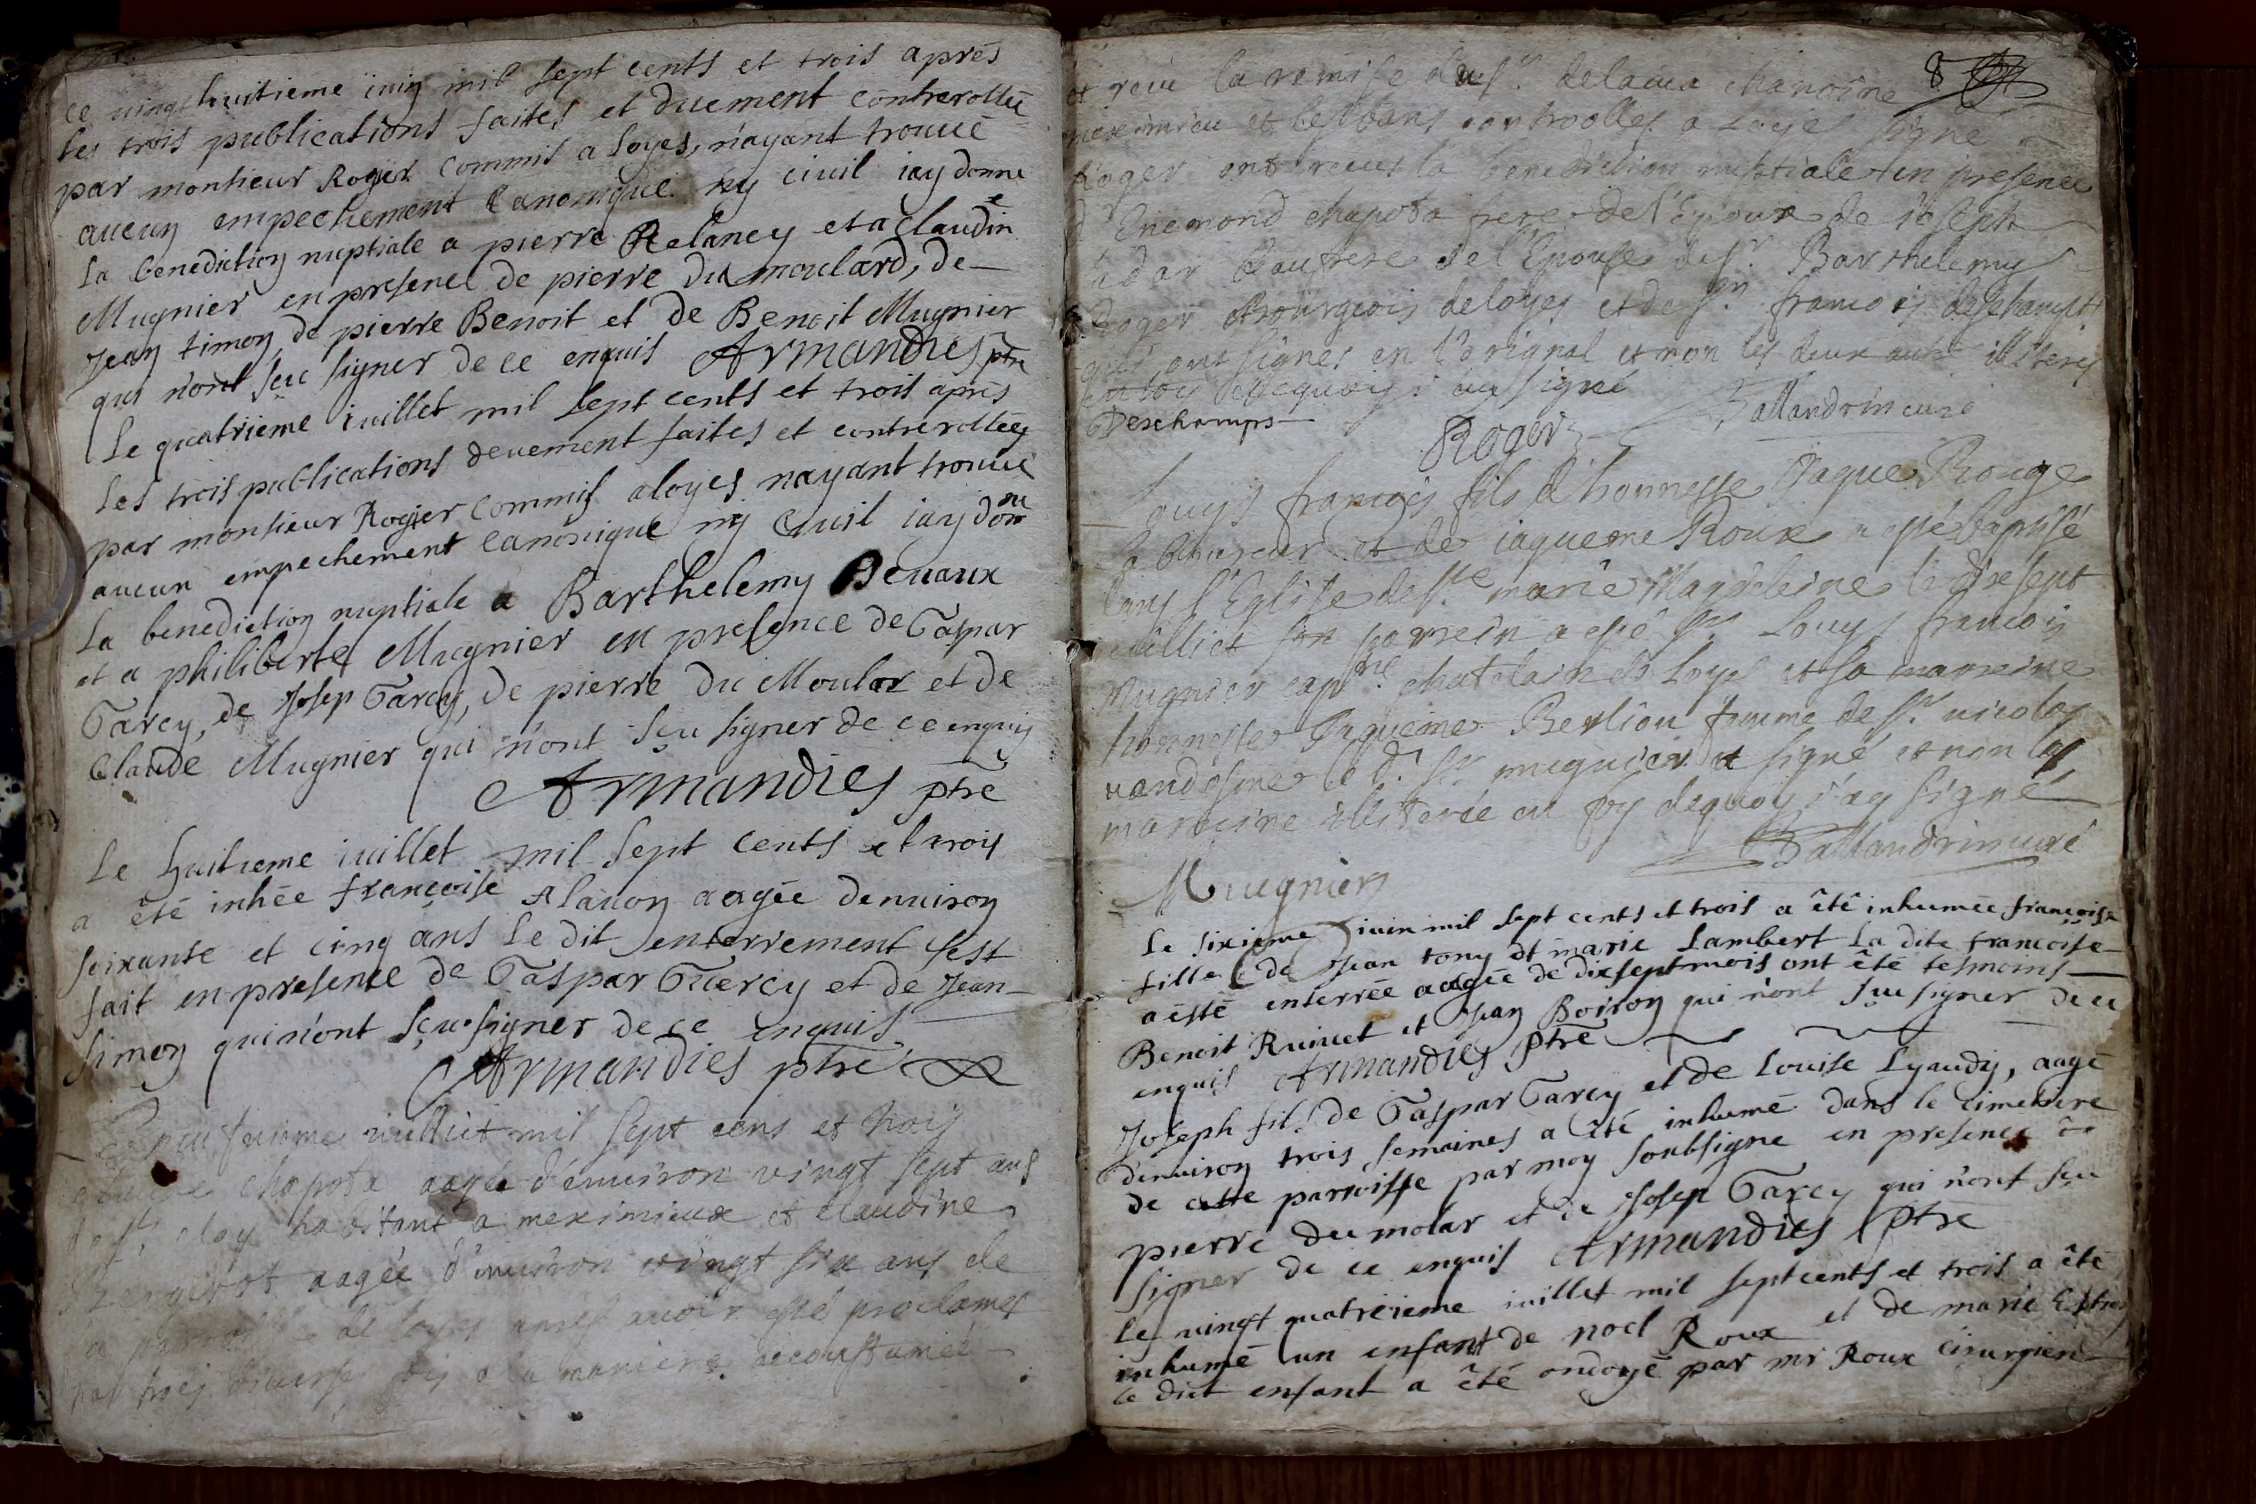 ce vingt huitieme iuin mil sept cents et trois aprés
les trois publications faites et duement contrerollée
par monsieur Rogier commis a loyes, n'ayant trouué
aucun empechement canonique ny ciuil iay donné
la benediction nuptiale a pierre Relancy et a claudine
Mugnier en presence de pierre du moulard, de
Jean timon de pierre Benoit et de Benoit Mugnier
qui n'ont sçu signer de ce enquis Armandies ptre
Le quatrieme iuillet mil sept cents et trois aprés
les trois publications deuement faites et contrerollées
par monsieur Rogier commis a loyes n'ayant trouué
aucun empechement canonique ny ciuil iay donné
la benediction nuptiale a Barthelemy Beuaux
et a philiberte Mugnier en presence de Gaspar
Garcy, de Josep Garcy, de pierre du Moular et de
Claude Mugnier qui n'ont sçu signer de ce enquis
Armandies ptre
Le huitieme iuillet mil sept cents et trois
a été inhée françoise Alauon aagée denuiron
soixante et cinq ans le dit enterrement s'est
fait en presence de Gaspar Guercy et de Jean
simon qui n'ont sçu signer de ce enquis
Armandies ptre
iuilliet mil sept cens et trois
chapota aagée d'enuiron vingt sept ans
habitant a meximieux et claudine
aagée d'enuiron vingt six ans de
la de loyes apres auoir esté proclames
par trois diuerses fois a la maniere accoustumée
8
et reçu la remise du sr. delacua chanoine
meximieu et les bans controolles a Loyes signé
Roger ont reçus la benediction nuptiale en presence
d'Enemond chapota frere de l'Epoux de ioseph
beaufrere de l'Epouse de sr. Barthelemy
Roger Bourgeois de loyes et de sr. francois deschamps
qui ont signes en l'original et non les deux autre illiteres
en foy dequoy i'ay signé Ballandrin curé
Deschamps Roger
Louys francois fils d'honneste Jaque Rouge
laboureur et de iaqueme Roux a esté baptisé
dans l'Eglise de ste marie Magdeleine le dixsept
iuilliet son parrein a esté sr. Louys francois
Mugnier capne. chatelain de Loyes et sa marreine
honneste Jaqueme Berliou femme de sr. nicolas
vandosme le d. sr. mugnier a signé et non la
marreine illiterée en foy dequoy i'ay signé
Ballandrin curé
Mugnier
Le sixieme iuin mil sept cents et trois a êtê inhumée françoise
fille de Jean tony et marie Lambert la dite francoise
a ésté enterrée aagée de dixsept mois ont été tesmoins
Benoit Ruiuet et Jean Boiron qui n'ont sçu signer de ce
enquis Armandies ptre
Joseph fils de Gaspar Garcy et de Louise Lyaudy, aagé
d'enuiron trois semaines a été inhumé dans le cimetiere
de cette parroisse par moy soubsigne en presence de
pierre du molar et de Josep Garcy qui n'ont sçu
signer de ce enquis Armandies ptre
Le vingt quatreieme iuillet mil sept cents et trois a êté
inhumé un enfant de noel Roux et de marie
le dict enfant a êté ondoyé par mr Roux cirurgien